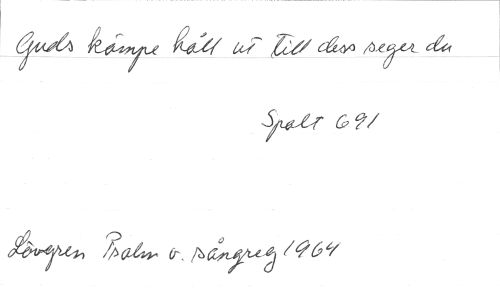 Guds kämpe håll ut till dess seger du
Spalt 691
Lövgren Psalm o. sångreg 1964